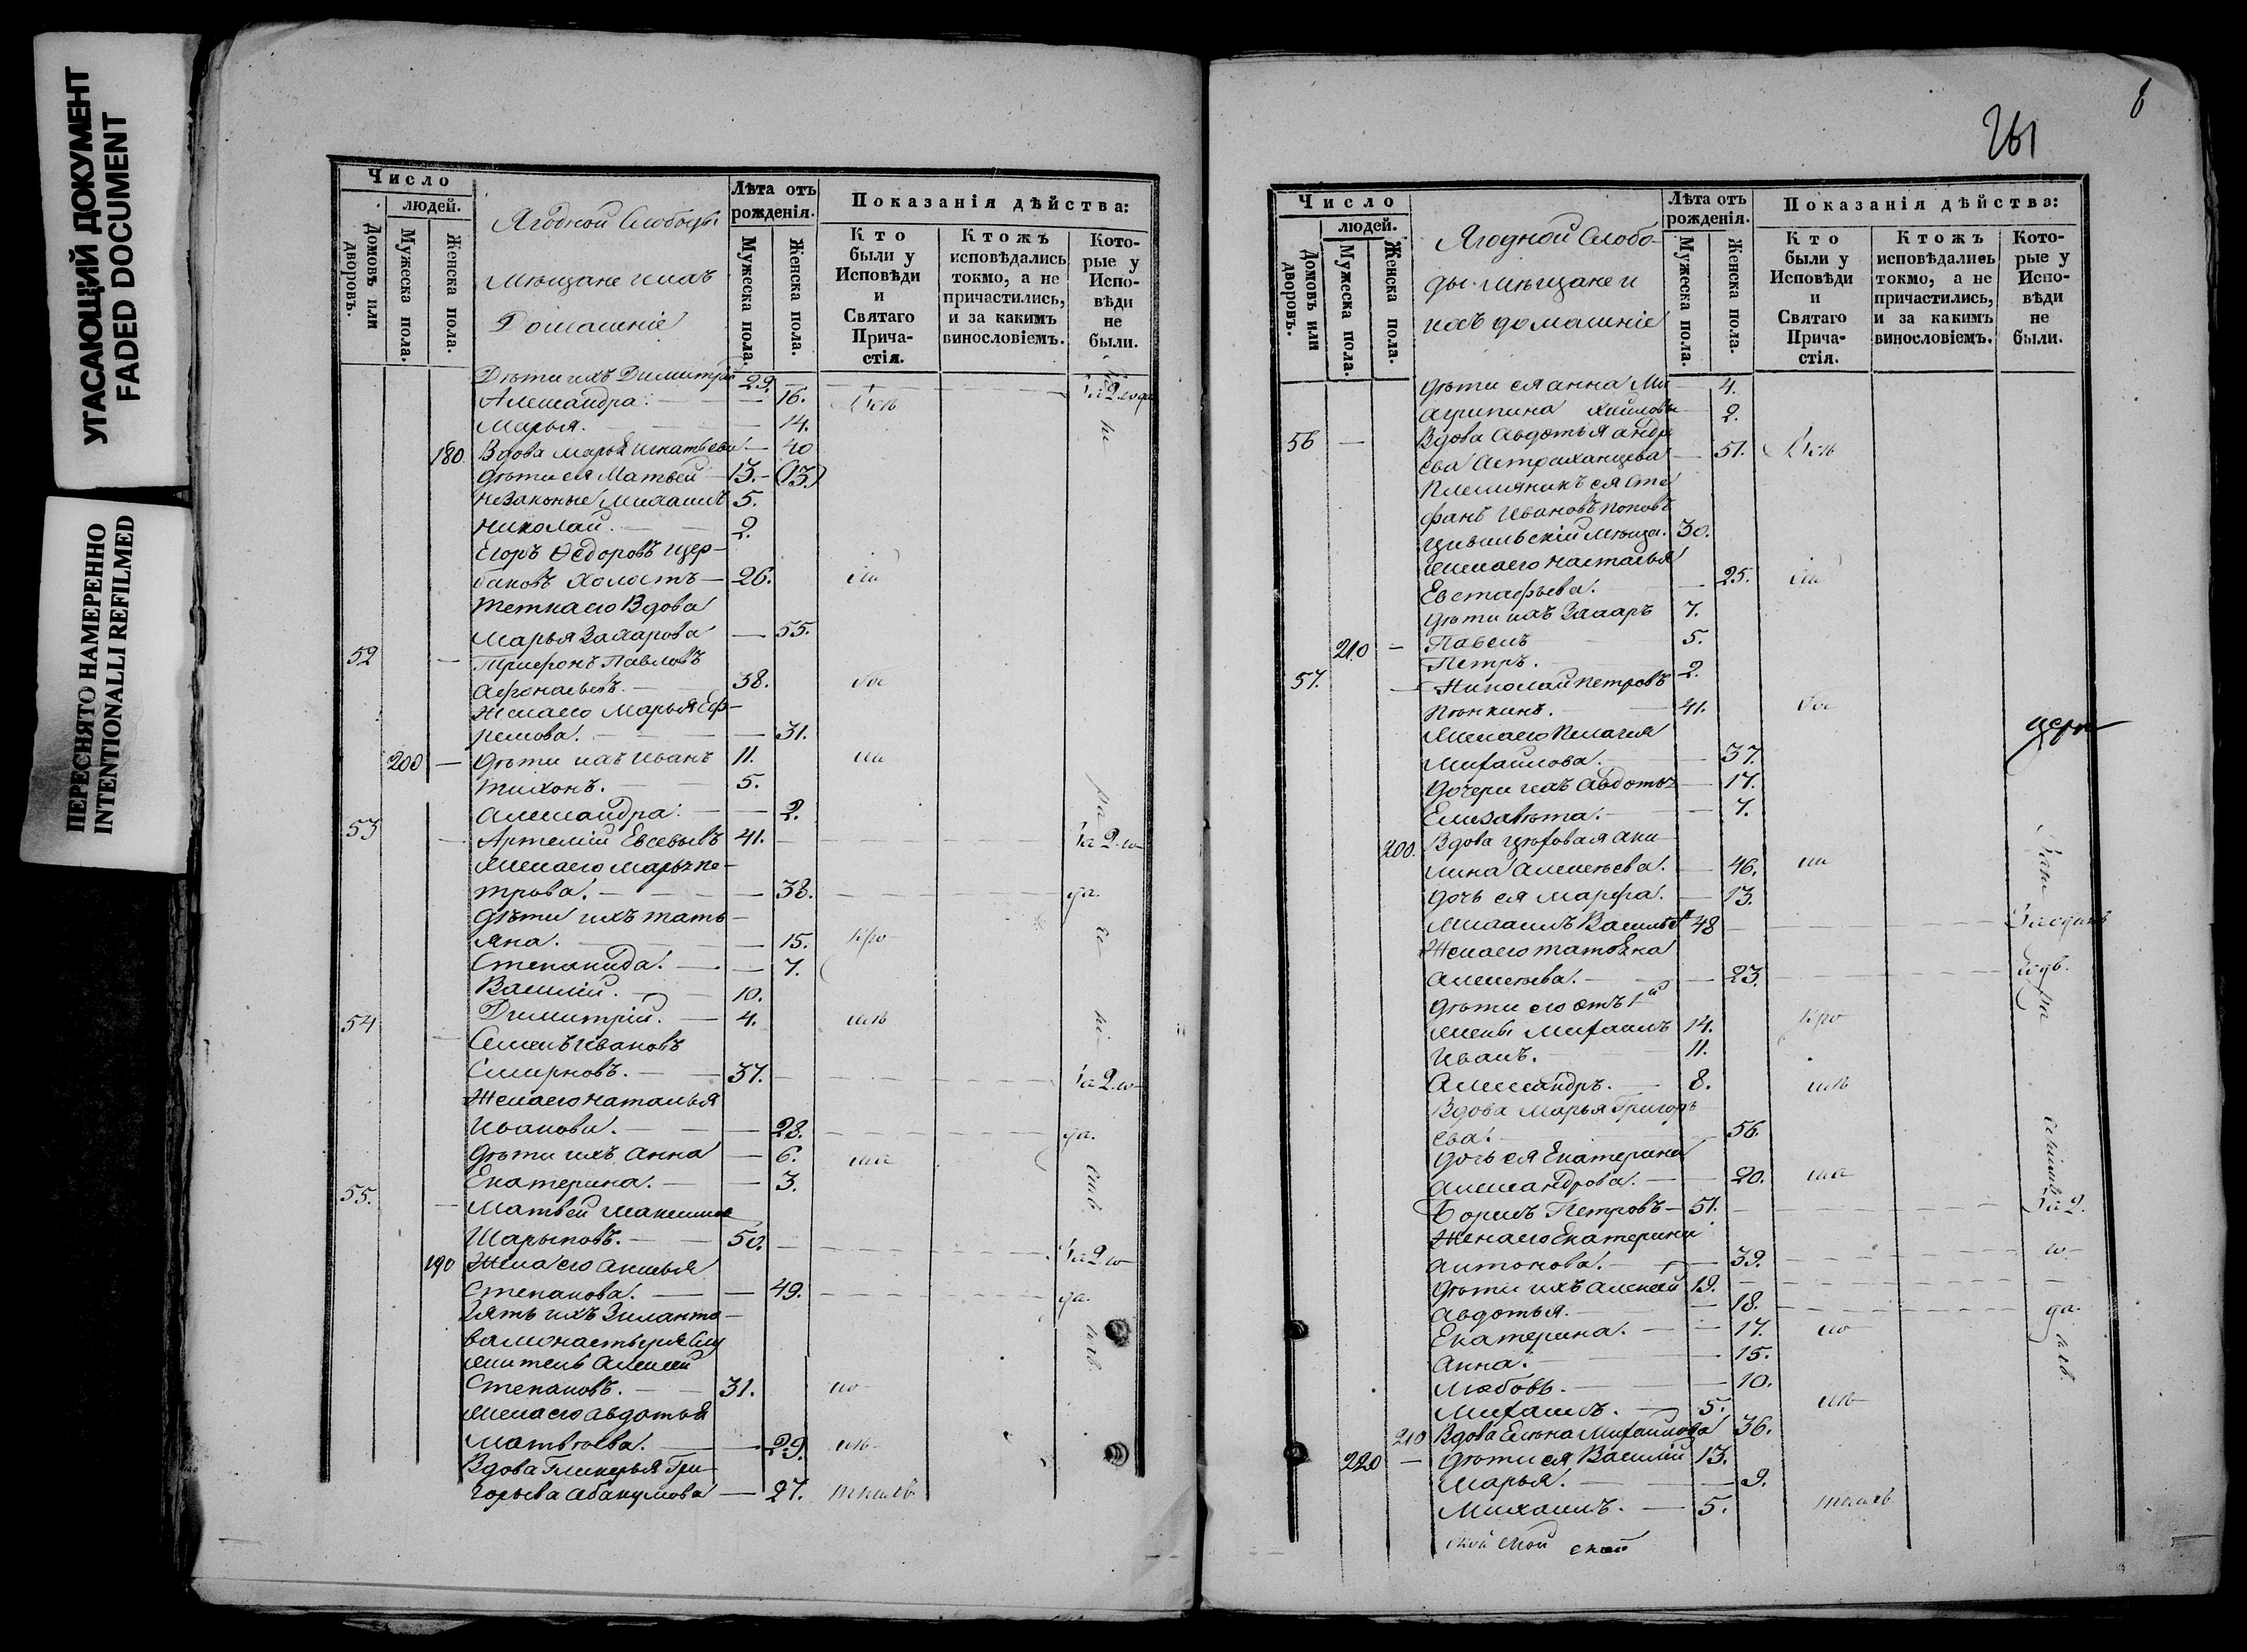 УГАСАЮЩИЙ ДОКУМЕНТ
FADED DOCUMENT
ПЕРЕСНЯТО НАМЕРЕННО
INTENTIONALLI REFILMED
Число
людей.
Домовъ или дворовъ.
Мужеска пола.
Женска пола.
Ягодной Слободы
мѣщане и ихъ
Домашніе
Лѣта отъ рожденія.
Мужеска пола.
Женска пола.
Показанія дѣйства:
Кто были у Исповѣди и Святаго Причастія.
Ктожъ исповѣдались токмо, а не причастились, и за какимъ винословіемъ.
Которые у Исповѣди не были.
Дѣти ихъ Димитрій 29.
Александра. 16.
Марья. 14.
180. Вдова Марья 40
дѣти ея Матвей 13. (13)
незаконые Михаилъ 5.
Николай. 2.
Егоръ Ѳедоровъ Щер-
баковъ холостъ 26.
тетка его Вдова
Марья Захарова 55.
52 Трифонъ Павловъ
38.
Жена его Марья Еф-
ремова. 31.
200 дѣти ихъ Иванъ 11.
Тихонъ. 5.
Александра. 2.
53 Артемій Евсевьевъ 41. за 2. го
Жена его Марья Пе-
трова. 38. да.
дѣти ихъ Тать-
яна. 15.
Степанида. 7.
Василій. 10.
Димитрій. 4.
54 Семенъ Ивановъ
Смирновъ. 37. за 2. го
Жена его Наталья
Иванова. 28. да.
дѣти ихъ Анна 6.
Екатерина. 3.
55. Матвей
50. за 2 го
190 Жена его
Степанова. 49. да.
Зять ихъ Зиланто-
ва монастыря слу
житель Алексей
Степановъ. 31.
Жена его Авдотья
Матвѣева. 29.
Вдова Гликерья Гри-
горьева Абакумова 27.
261
Число
людей.
Домовъ или дворовъ.
Мужеска пола.
Женска пола.
Ягодной Слобо-
ды мѣщане и
ихъ домашніе
Лѣта отъ рожденія.
Мужеска пола.
Женска пола.
Показанія дѣйства:
Кто были у Исповѣди и Святаго Причастія.
Ктожъ исповѣдались токмо, а не причастились, и за какимъ винословіемъ.
Которые у Исповѣди не были.
дѣти ея Анна Ми 4.
Агрипина хайловы 2.
56 Вдова Авдотья Андре
ева Астраханцева 51.
Племянникъ ея Сте
фанъ Ивановъ Поповъ
Цивильскій мѣща. 30.
жена его Настасья
Евстафьева. 25.
дѣти ихъ Захаръ 7.
210 Павелъ 5.
Петръ. 2.
57. Николай Петровъ
Пѣнкинъ. 41.
Жена его Пелагея
Михайлова. 37.
дочери ихъ Авдотья 17.
Елизавѣта. 7.
200. Вдова цеховая Аку-
лина Алексѣева. 46.
дочь ея Марфа. 13.
Михаилъ Васильевъ 48
Жена его Татьяна
Алексѣева. 23.
дѣти его отъ 1й
жены Михаилъ 14.
Иванъ. 11.
Александръ. 8.
Вдова Марья Григорь
ева. 56.
дочь ея Екатерина
Александрова. 20.
Борисъ Петровъ 51. за 2.
Жена его Екатерина
Антонова. 39. го
дѣти ихъ Алексей 19.
Авдотья. 18. да.
Екатерина. 17.
Анна. 15.
Любовь. 10.
Михаилъ. 5.
210 Вдова Елена Михайлова 36.
220 дѣти ея Василій 13.
Марья. 9.
Михаилъ. 5.